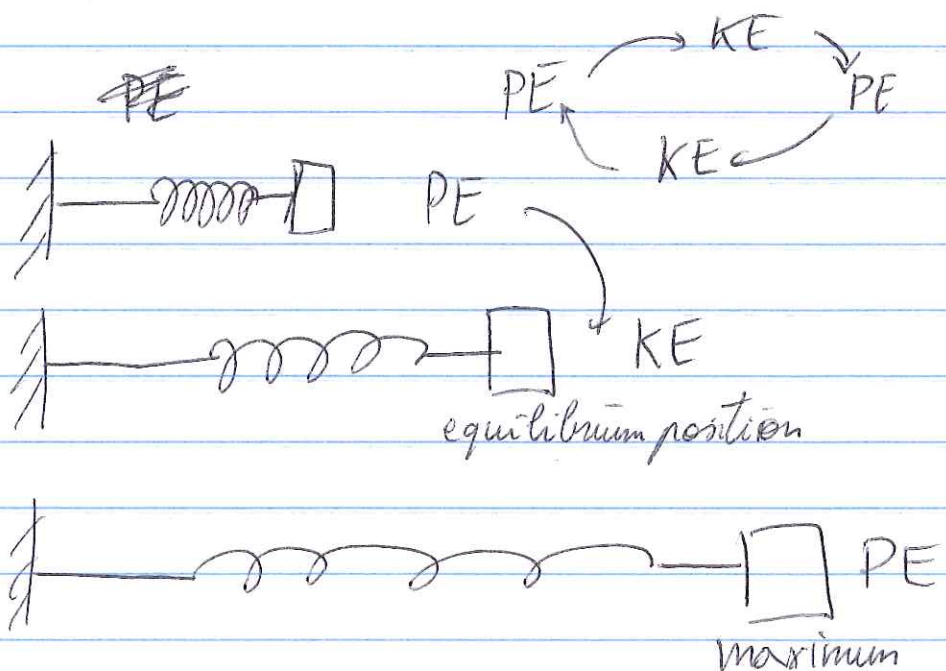 KE
PE PE
KE
PE
PE
KE
equilibrium position
PE
maximum